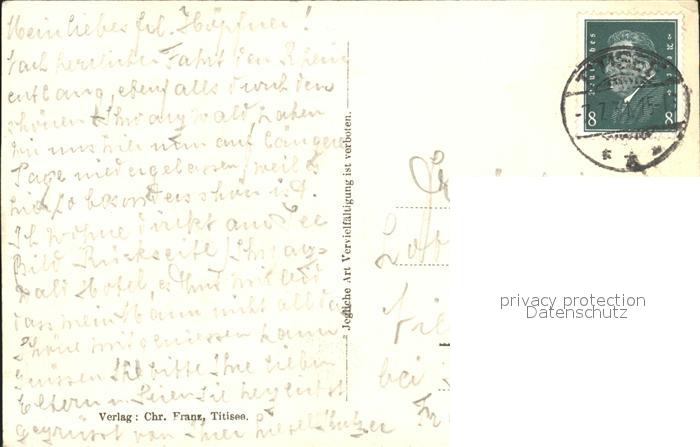 Mein liebes Frl. Höpfner!
Nach herrlicher Fahrt den Rhein
entlang, ebenfalls durch den
schönen Schwarzwald, haben
wir uns hier nun auf längere
Tage niedergelassen, weil es
hier so besonders schön ist.
Ich wohne direkt am See
Bild Rückseite Schwarz-
wald Hotel, es thut mir leid
dass mein Mann nicht all das
Schöne mitgeniessen kann
Grüssen Sie bitte Ihre lieben
Eltern u. seien Sie herzlichst
gegrüsst von Ihrer
Verlag: Chr. Franz, Titisee.
Jegliche Art Vervielfältigung ist verboten.
Deutsches Reich
8 8
TITISEE
bei
privacy protection
Datenschutz